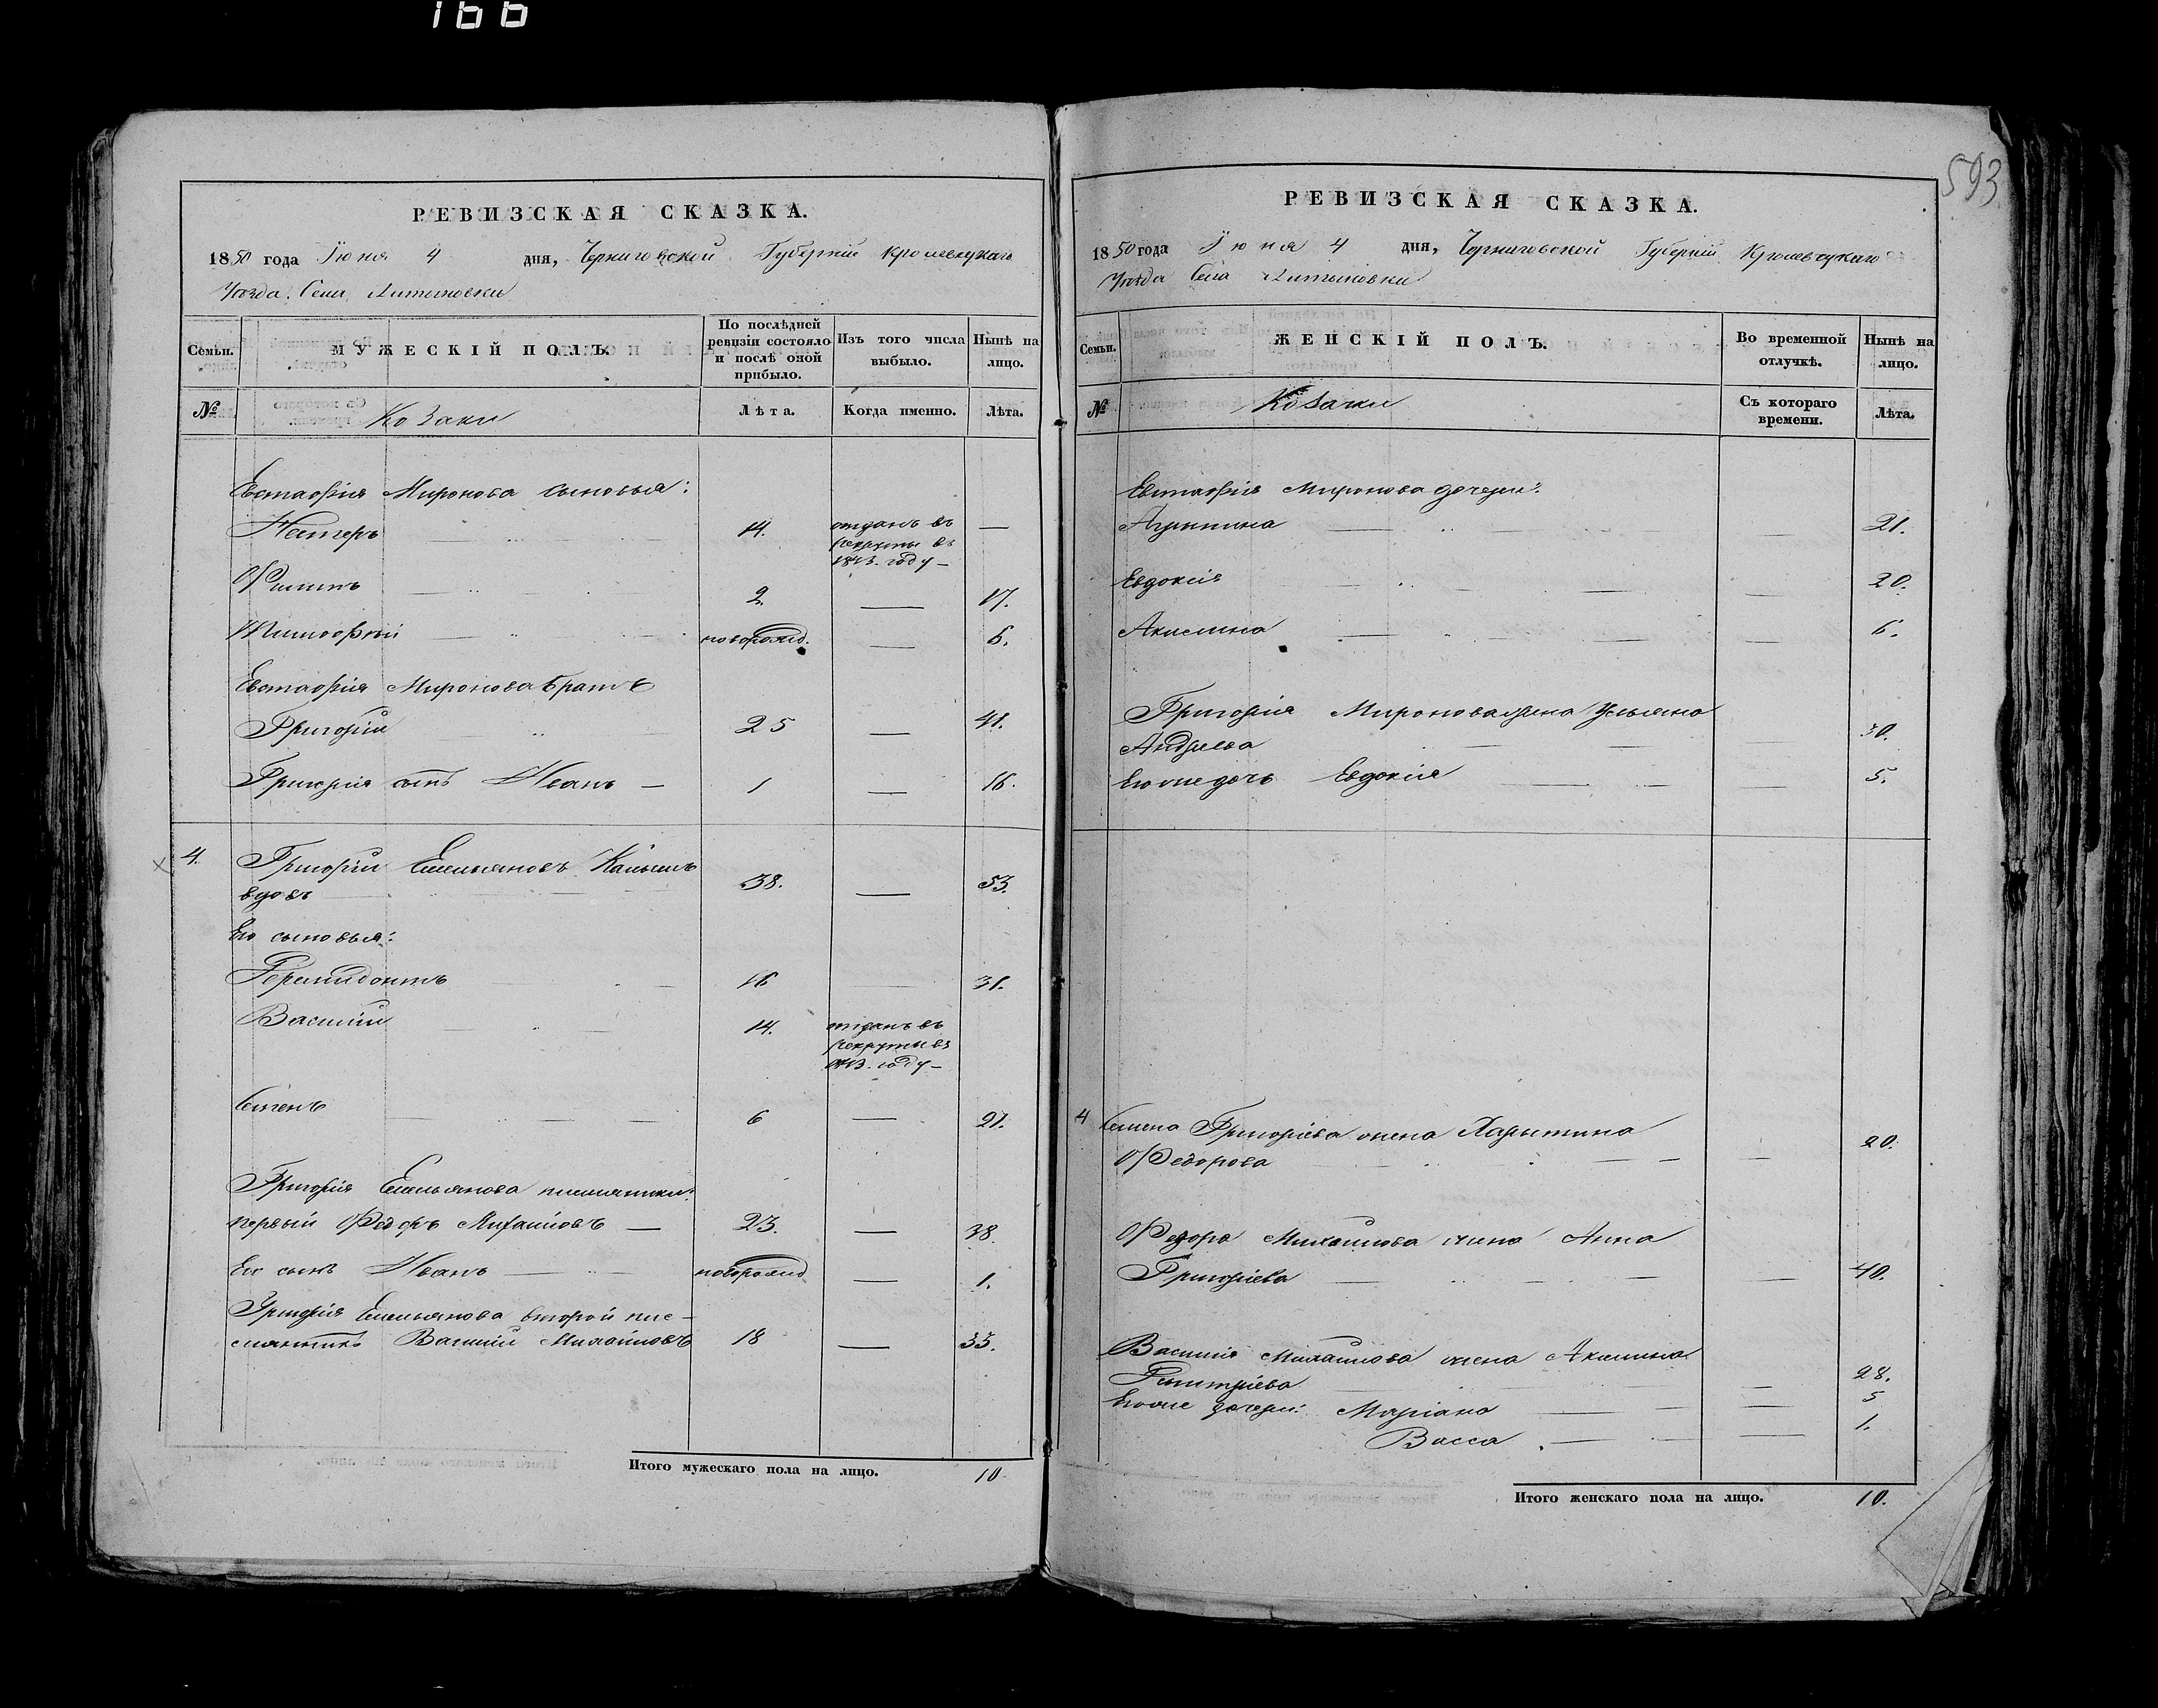 166
593
РЕВИЗСКАЯ СКАЗКА.
1850 года Іюня 4 дня, Черниговской Губерніи Кролевецкаго
Уѣзда. Села Литвиновки
Семьи. МУЖЕСКІЙ ПОЛЪ. По послѣдней ревизіи состояло и послѣ оной прибыло. Изъ того числа выбыло. Нынѣ на лицо.
№ Козаки Лѣта. Когда именно. Лѣта.
Евстафія Миронова сыновья:
Нестеръ 14. отданъ въ —
рекруты въ
1843. году —
Филипъ 2. — 17.
Тимофей новорожд. — 6.
Евстафія Миронова братъ
Григорій 25 — 41.
Григорія сынъ Иванъ — 1 — 16.
4. Григорій Емельяновъ
вдовъ 38. — 53.
Его сыновья:
16 — 31.
Василій 14. отданъ въ
рекруты въ
1843. году —
Семенъ 6 — 21.
Григорія Емельянова племянники:
первый Федоръ Михайловъ — 23. — 38.
Его сынъ Иванъ — новорожд — 1.
Григорія Емельянова второй пле-
мянникъ Василій Михайловъ 18 — 33.
Итого мужескаго пола на лицо. 10
РЕВИЗСКАЯ СКАЗКА.
1850 года Іюня 4 дня, Черниговской Губерніи Кролевецкаго
Уѣзда Села Литвиновки
Семьи. ЖЕНСКІЙ ПОЛЪ. Во временной отлучкѣ. Нынѣ на лицо.
№ Козачки Съ котораго времени. Лѣта.
Евстафія Миронова дочери:
Агрипина — 21.
Евдокія — 20.
Акилина — 6.
Григорія Миронова жена Ульяна
Андреева — 30.
Его же дочь Евдокія — 5.
4 Семена Григоріева жена Харитина
Федорова — 20.
Федора Михайлова жена Анна
Григоріева — 40.
Василія Михайлова жена Акилина
Дмитріева — 28.
Его же дочери: Маріана — 5
Васса — 1.
Итого женскаго пола на лицо. 10.